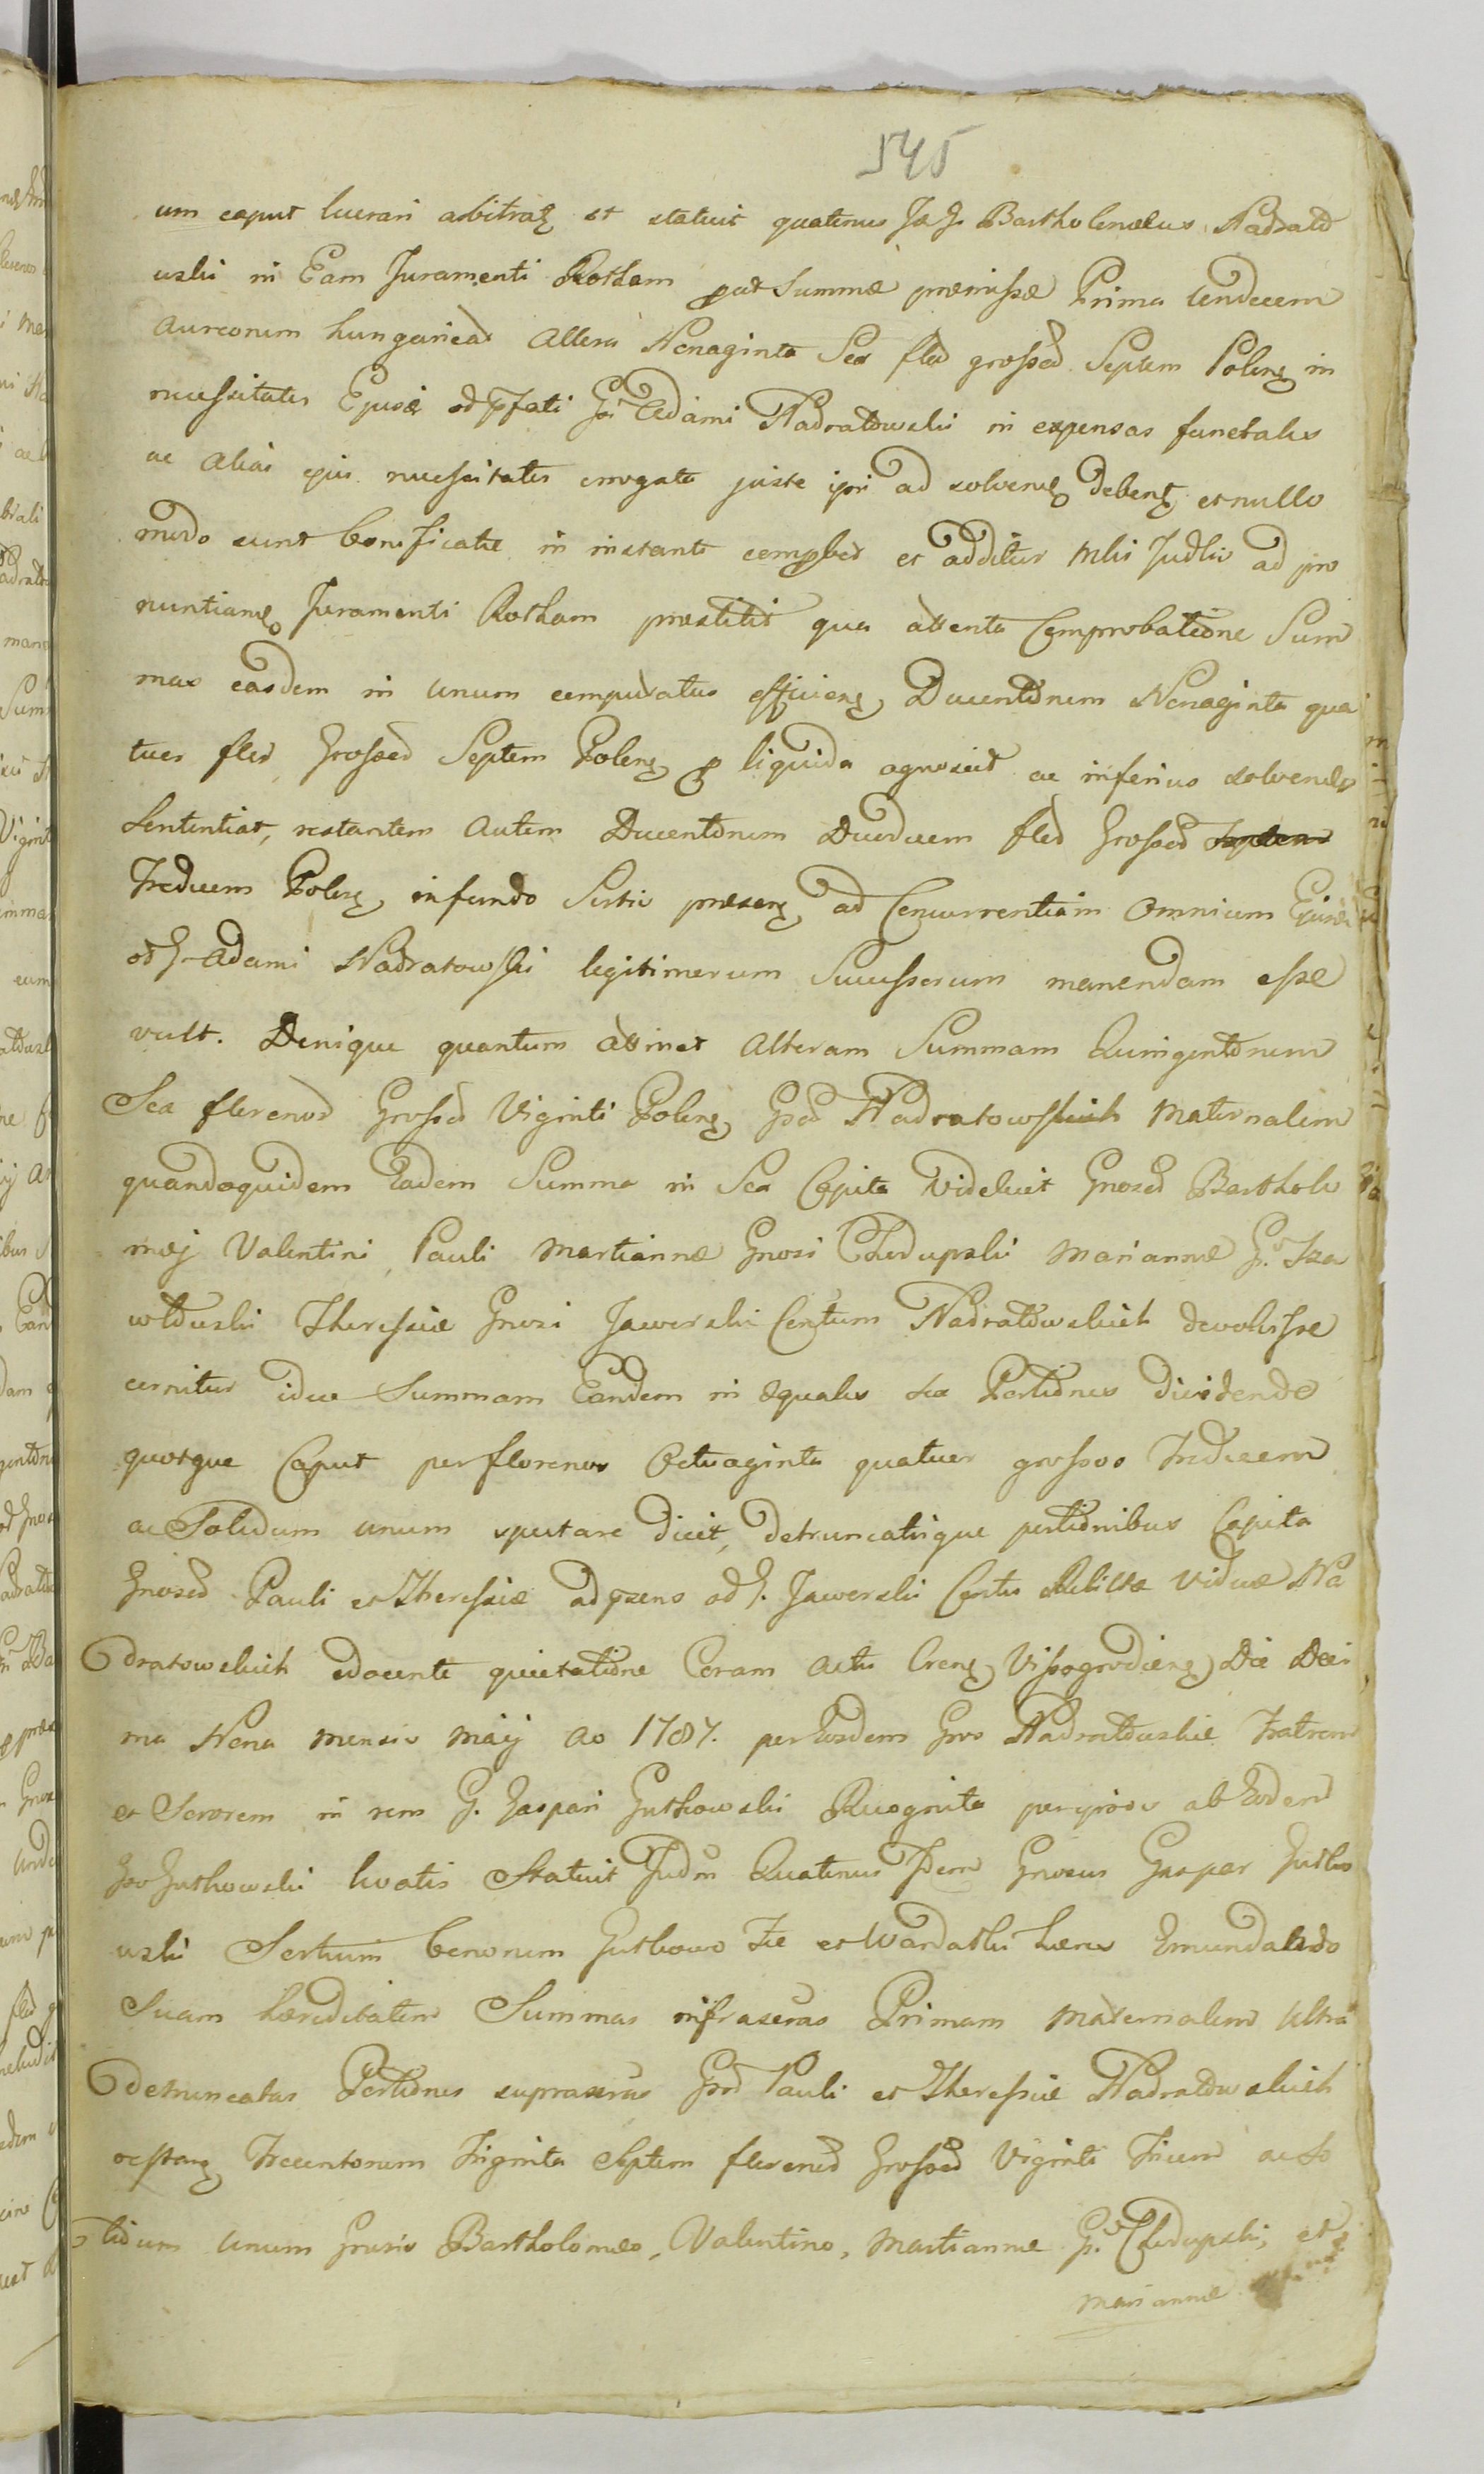 545
um caput lucrari arbitratꝫ et statuit quatenus Jdē G. Bartholomæus Nadrato
wski in Eam Juramenti Rotham quod Summæ præmissæ Prima Undecem
Aureorum hungarical Altera Nonaginta Sex flor grossor Septem Polonꝫ in
necessitates Ejusd od pfati Gsi Adami Nadratowski in expensas funerales
ac alias ejus necessitates erogatæ juste ipsi ad solvenꝫ debentꝫ et nullo
modo sunt bonificatæ in instanti comparet et additur Mlis Judlis ad pro
nuntianꝫ Juramenti Rotham præstitit qua attenta Comprobatione Sum
mas easdem in unum computatas efficienꝫ Ducentorum Nonaginta qua
tuor flor Grossor Septem Polonꝫ p liquida agnoscit ac inferius solvendas
Sententiat, restantem autem Ducentorum Duodecem flor Grossor
Tredecem Polonꝫ in fundo Sortis præsenꝫ ad Concurrentiam Omnium Ejusd
od G. Adami Nadratowski legitimorum Successorum manendam esse
vult. Denique quantum attinet Alteram Summam Quingentorum
Sex florenor Grossor Viginti Polonꝫ Gsor Nadratowskich Maternalem
quandoquidem Eadem Summa in Sex Capita videlicet Gnosor Bartholo
mæj Valentini, Pauli Martiannæ Gnosi Chodupski Mariannæ G. Sza
włowski Theressiæ Gnosi Jaworski Contum Nadratowskich devolvisse
cernitur ideo Summam Eandem in æquales sex Portiones dividendo
quotque Caput per florenos Octuaginta quatuor grossos Tredecem
ac Solidum unum spectare dicit, detruncatisque portionibus Capita
Gnosor Pauli et Theressiæ ad psens od G. Jaworski Contis Relictæ Viduæ Na
dratowskich docente quietatione Coram Actis Crenꝫ Vissogrodienꝫ Die Deci
ma Nona Mensis Maij Ao 1787. per Eosdem Gnos Nadratowskie Fratrem
et Sororem in rem G. Gaspari Gutkowski Recognita per ipsos ab Eodem
Gso Gutkowski levatis Statuit Judm Quatenus Idem Gnosus Gaspar Gutko
wski Sortium bonorum Gutkowo Fre et Wardatki hæres Emundando
Suam hæreditatem Summas infrascras Primam Maternalem ultra
detruncatas Portiones suprascras Gsor Pauli et Theressiæ Nadratowskich
restanꝫ Trecentorum Triginta Septem florenor Grossor Viginti Trium ac So
lidum unum Gnosis Bartholomeo, Valentino, Martiannæ G. Chodupski, et
Mariannæ